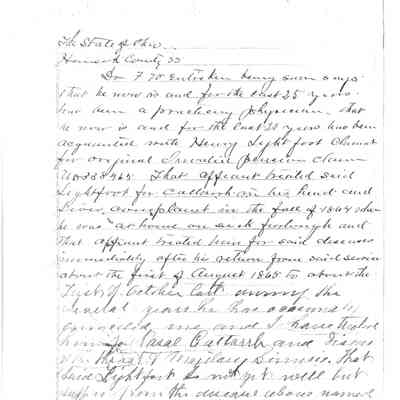 The State of Ohio
Hancock County SS
Dr F W Entrekin being sworn says
that he now is and for the last 25 years
has been a practicing physician that
he now is and for the last 20 years has been
acquainted with Henry Lightfoot Claimant
for original Invalid pension claim
That affiant treated said
Lightfoot for Catarrh in his head and
Liver complaint in the fall of 1864 when
he was at home on sick furlough and
that affiant treated him for said diseases
immediately after his return from said service
about the first of August 1865 to about the
first of October last during the
several years he has occasionally
consulted me and I have treated
him for Nasal Catarrh and
throat &
said Lightfoot is not yet well but
suffers from the diseases above named